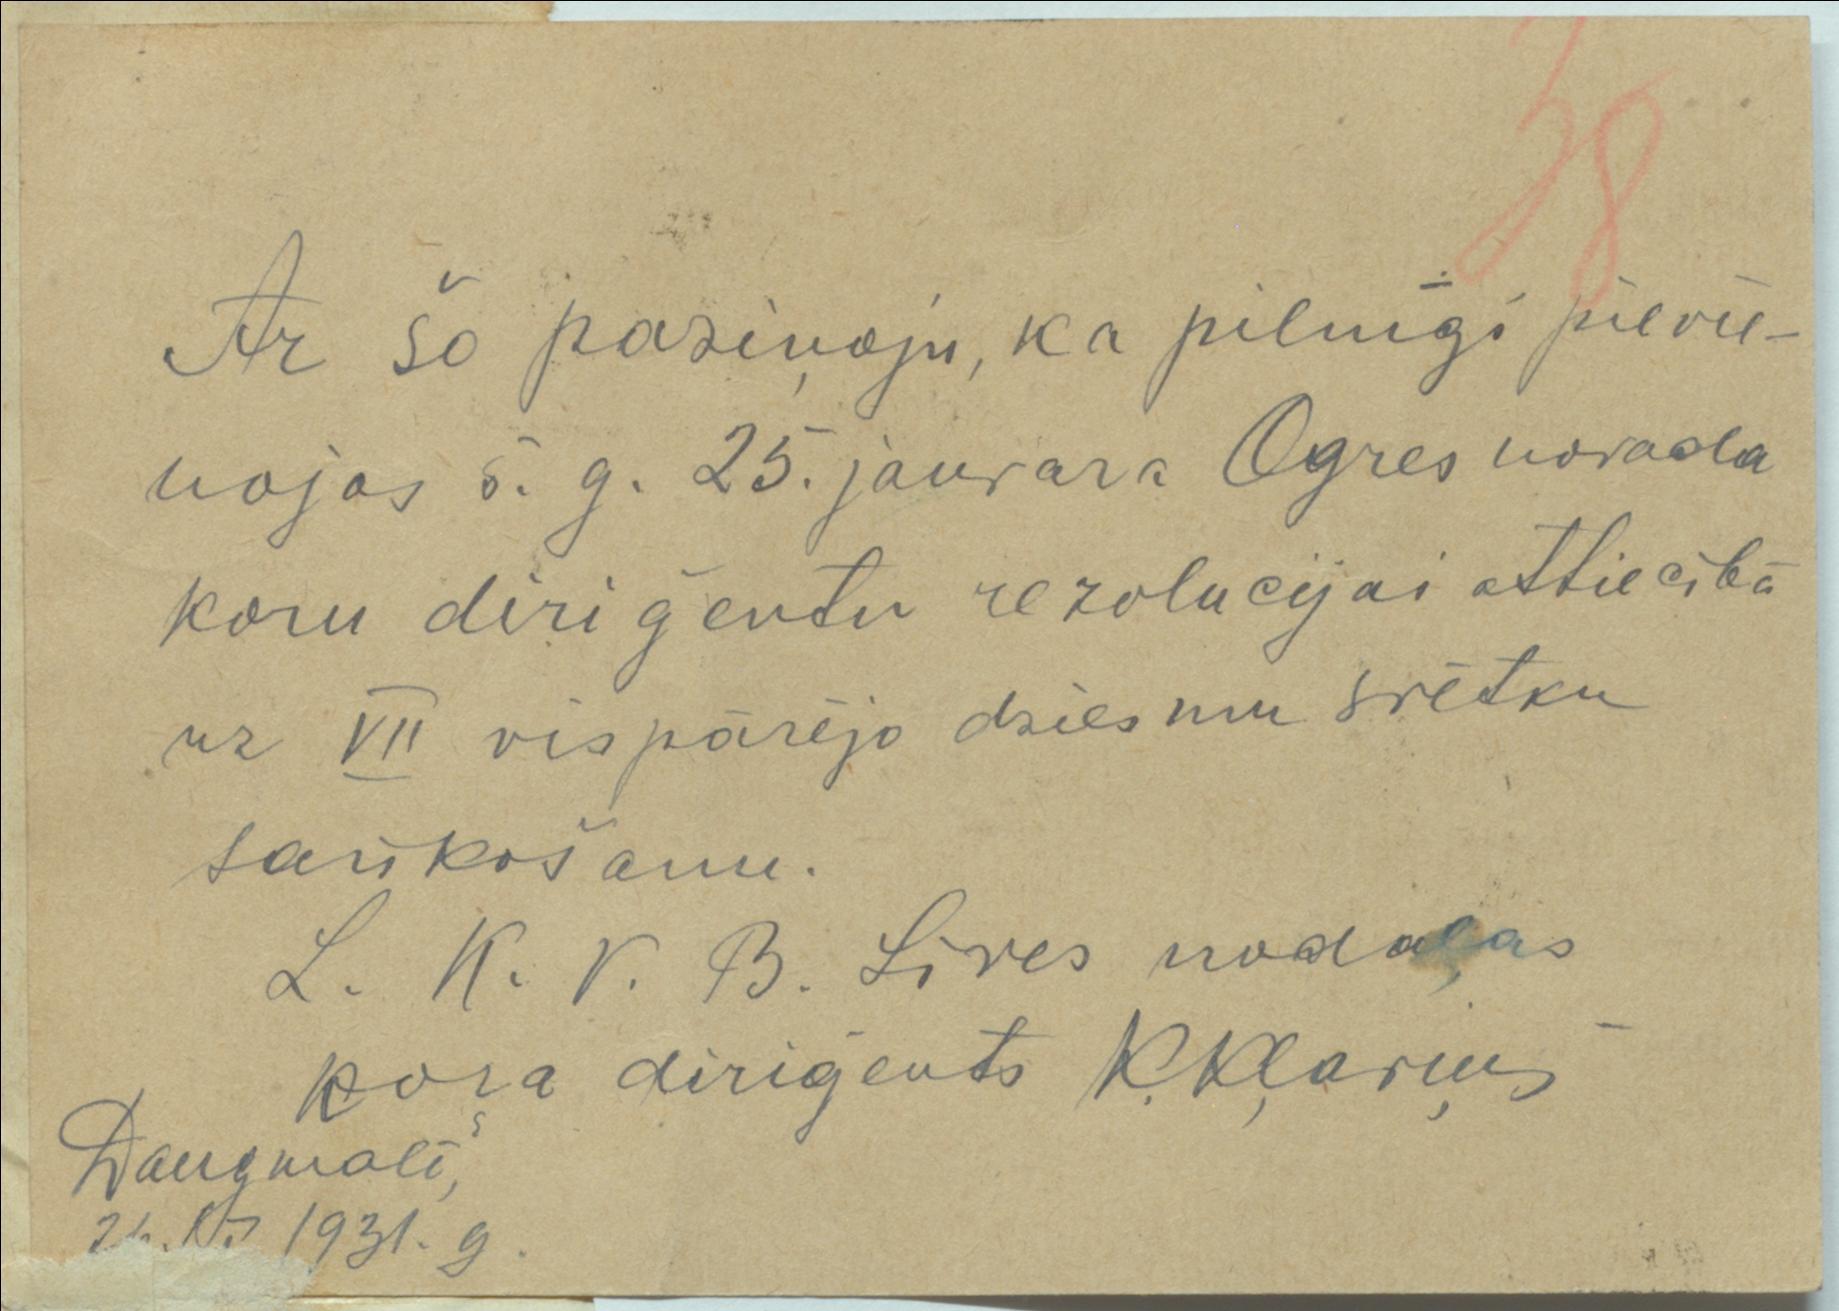 38
Ar šo paziņoju, ka pilnīgi pievie-
nojos š. g. 25. janvara Ogres novada
koru diriģentu rezolucijai attiecībā
uz VII vispārējo dziesmu svētku
sarīkošanu.
L. K. V. B. Līves nodaļas
koŗa diriģents K. Kļaviņš
Daugmalē,
1931. g.